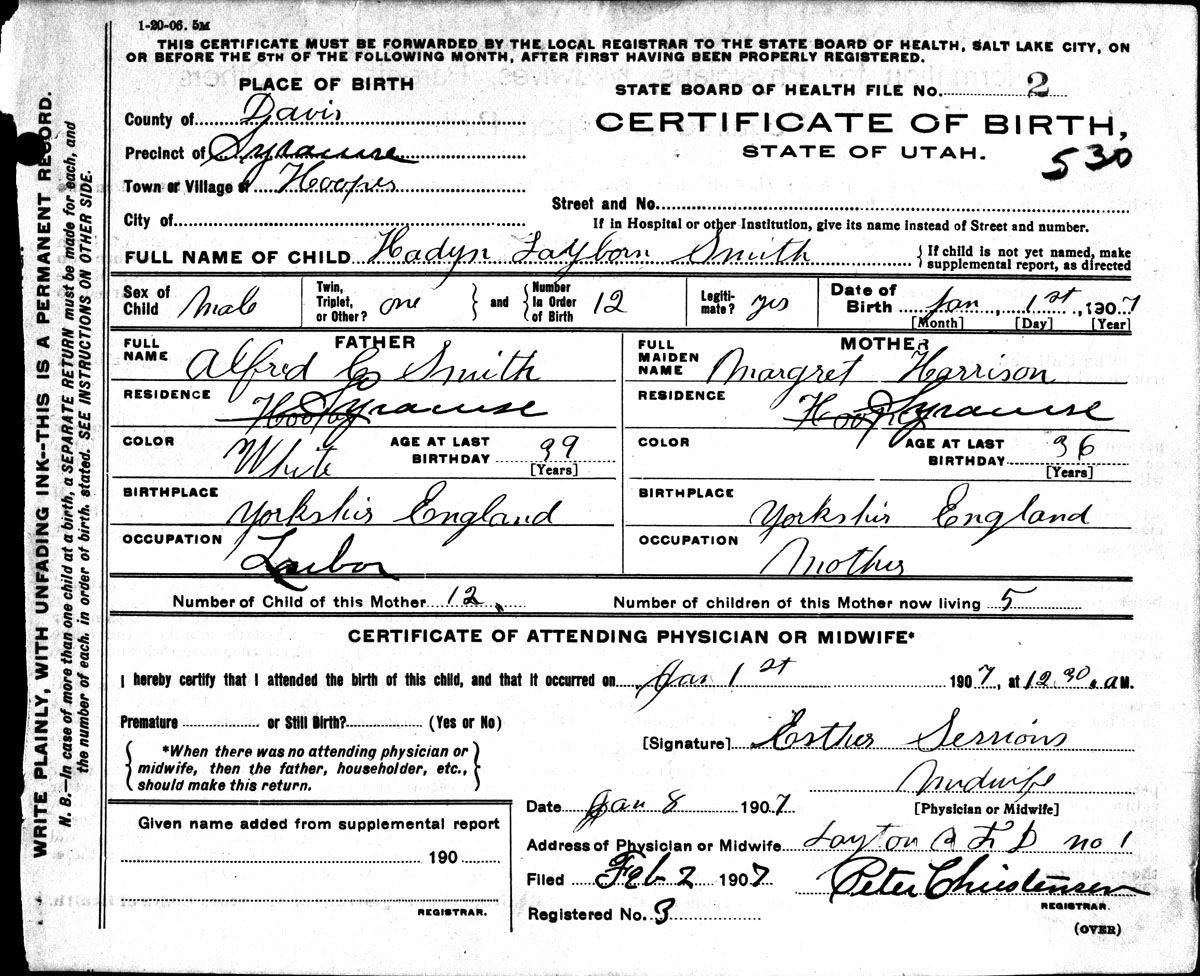 1-20-06. 5M
THIS CERTIFICATE MUST BE FORWARDED BY THE LOCAL REGISTRAR TO THE STATE BOARD OF HEALTH, SALT LAKE CITY, ON
OR BEFORE THE 5TH OF THE FOLLOWING MONTH, AFTER FIRST HAVING BEEN PROPERLY REGISTERED.
PLACE OF BIRTH
STATE BOARD OF HEALTH FILE No. 2
County of Davis
CERTIFICATE OF BIRTH,
STATE OF UTAH.
530
Precinct of Syracuse
Town or Village of Hooper
Street and No.
City of
If in Hospital or other Institution, give its name instead of Street and number.
FULL NAME OF CHILD Hadyn Layborn Smith { If child is not yet named, make
supplemental report, as directed
Sex of Child Male
Twin, Triplet, or Other? one } and { Number In Order of Birth 12
Legiti-mate? yes
Date of Birth Jan 1st, 1907
[Month] [Day] [Year]
FATHER
FULL NAME Alfred G Smith
RESIDENCE Hooper Syracuse
COLOR White AGE AT LAST BIRTHDAY 39
[Years]
BIRTHPLACE Yorkshir England
OCCUPATION Laibor
MOTHER
FULL MAIDEN NAME Margret Harrison
RESIDENCE Hooper Syracuse
COLOR AGE AT LAST BIRTHDAY 36
[Years]
BIRTHPLACE Yorkshir England
OCCUPATION Mother
Number of Child of this Mother 12 Number of children of this Mother now living 5
CERTIFICATE OF ATTENDING PHYSICIAN OR MIDWIFE*
I hereby certify that I attended the birth of this child, and that it occurred on Jan 1st 1907, at 12.30 a M.
Premature or Still Birth? (Yes or No)
{ *When there was no attending physician or
midwife, then the father, householder, etc., }
should make this return.
[Signature] Esther Sessions
Midwife
[Physician or Midwife]
Date Jan 8 1907
Given name added from supplemental report
190
REGISTRAR.
Address of Physician or Midwife Layton R F D no 1
Filed Feb 2 1907 Peter Christensen
REGISTRAR.
Registered No. 3
(OVER)
WRITE PLAINLY, WITH UNFADING INK--THIS IS A PERMANENT RECORD.
N. B.—In case of more than one child at a birth, a SEPARATE RETURN must be made for each, and
the number of each, in order of birth, stated. SEE INSTRUCTIONS ON OTHER SIDE.